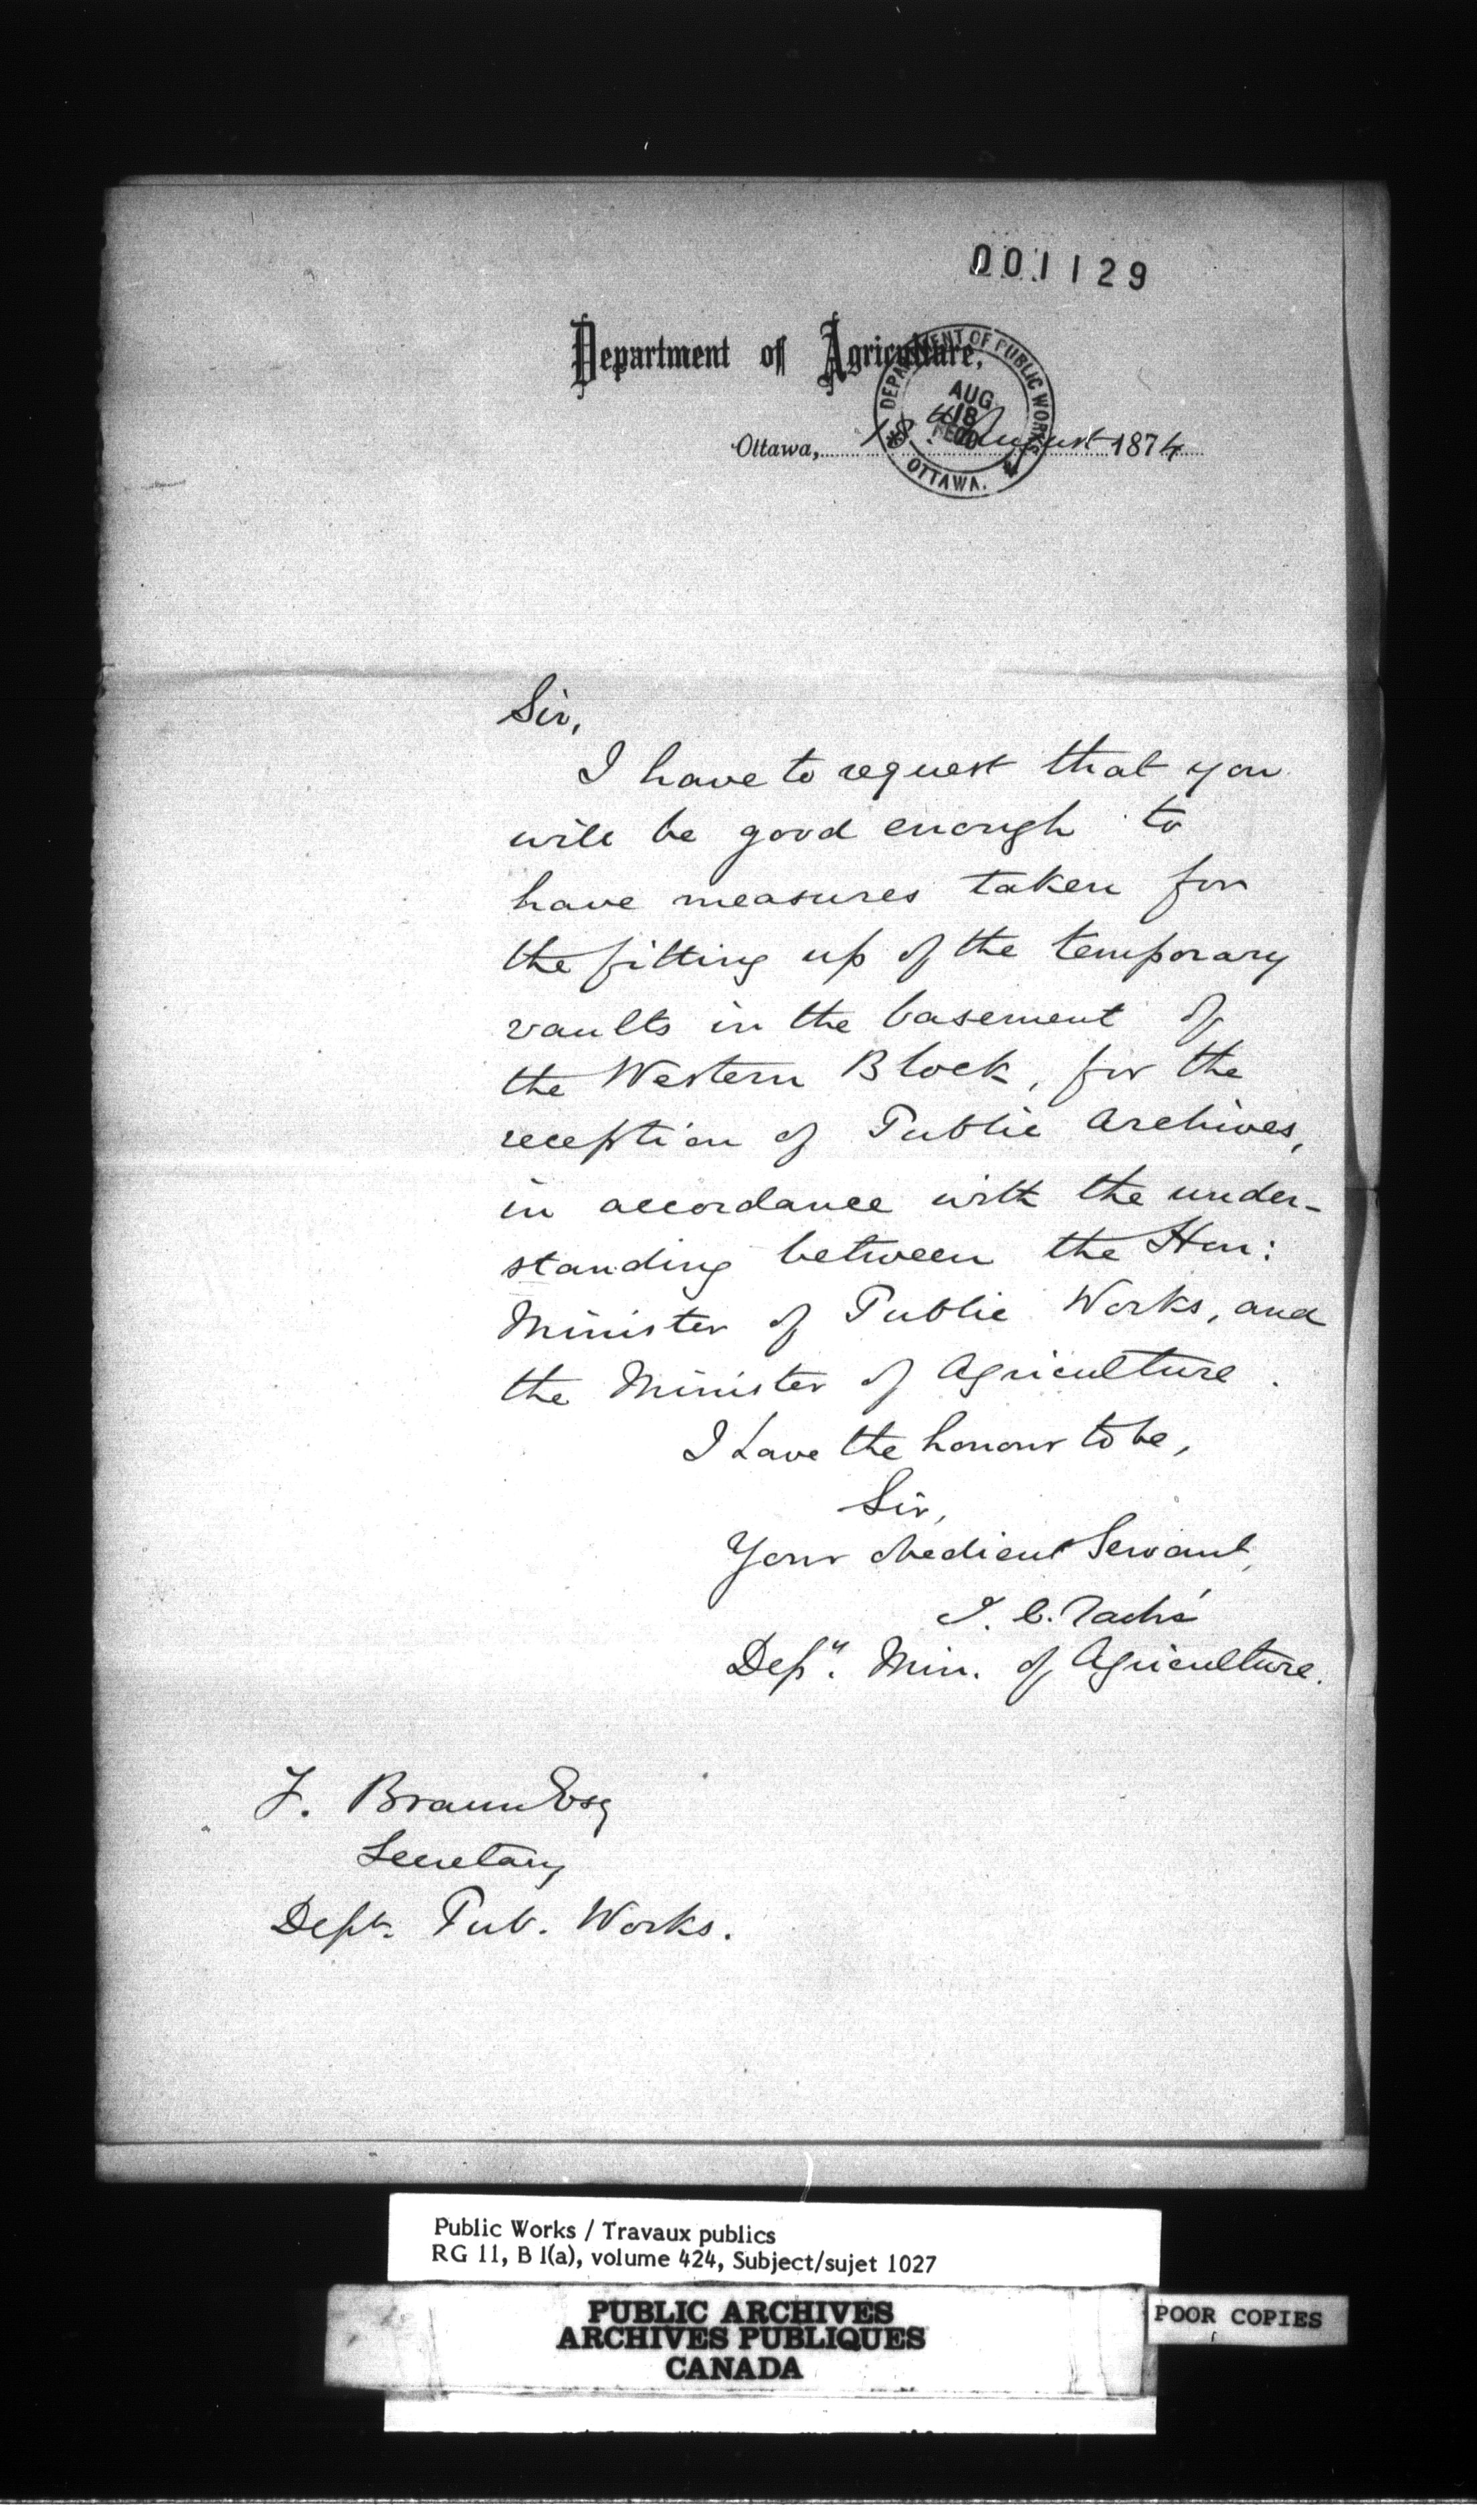 001129
Department of Agriculture,
DEPARTMENT OF PUBLIC WORKS
AUG
18
RECD
OTTAWA.
Ottawa, 18 August 1874
Sir,
I have to request that you
will be good enough to
have measures taken for
the fitting up of the temporary
vaults in the basement of
the Western Block, for the
reception of Public Archives,
in accordance with the under-
standing between the Hon:
Minister of Public Works, and
the Minister of Agriculture.
I have the honour to be,
Sir,
Your obedient Servant,
J. C. Taché
Depy. Min. of Agriculture.
F. Braun Esq
Secretary
Dept. Pub. Works.
Public Works / Travaux publics
RG 11, B 1(a), volume 424, Subject/sujet 1027
PUBLIC ARCHIVES
ARCHIVES PUBLIQUES
CANADA
POOR COPIES